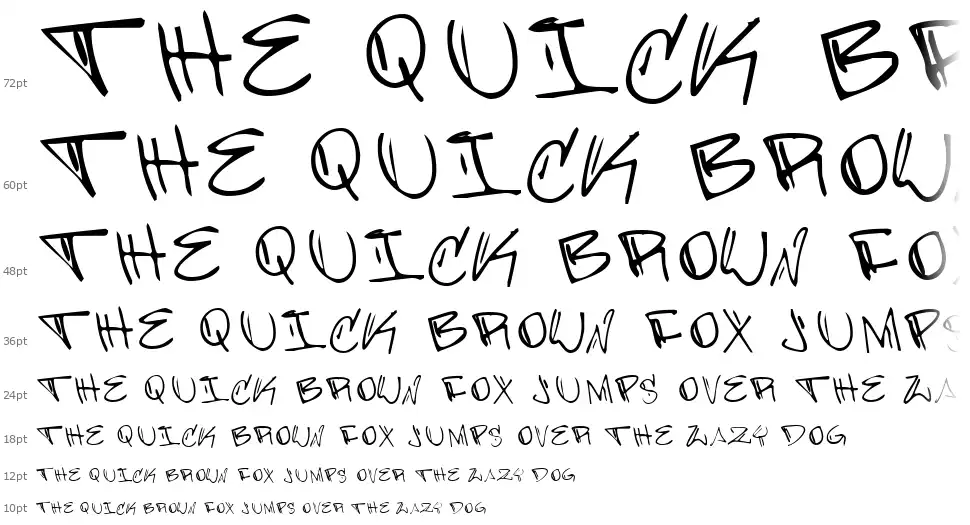 72pt THE QUICK BR
60pt THE QUICK BROWN
48pt THE QUICK BROWN FO
36pt THE QUICK BROWN FOX JUMPS
24pt THE QUICK BROWN FOX JUMPS OVER THE LA
18pt THE QUICK BROWN FOX JUMPS OVER THE LAZY DOG
12pt THE QUICK BROWN FOX JUMPS OVER THE LAZY DOG
10pt THE QUICK BROWN FOX JUMPS OVER THE LAZY DOG